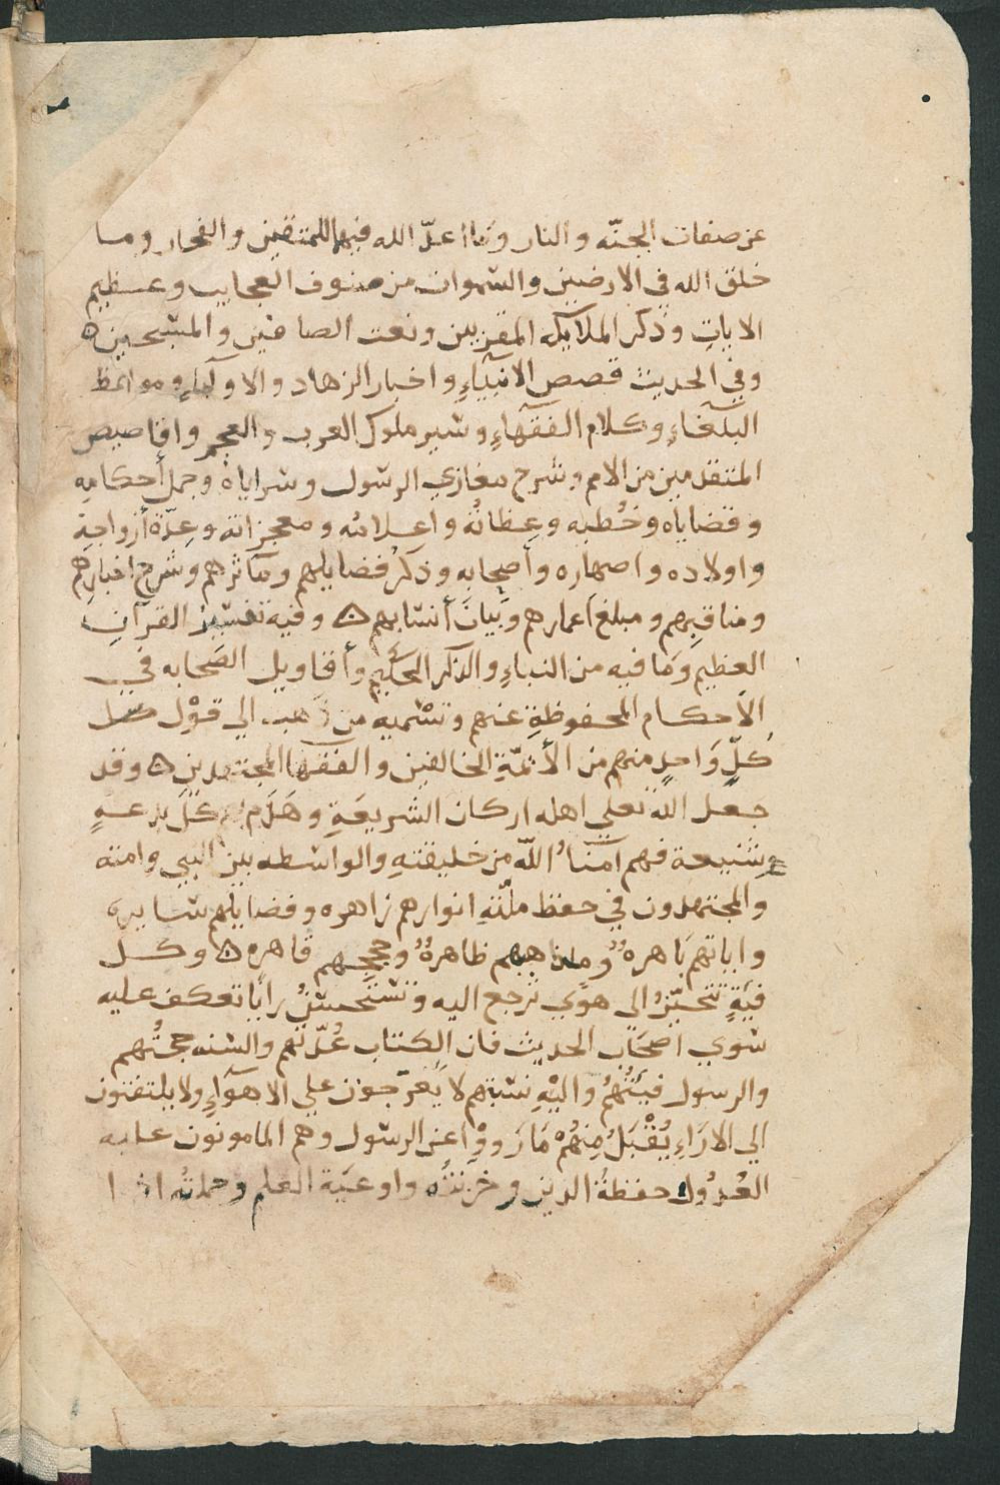 عن صفات الجنه والنار وما اعد الله فيها للمتقين والفجار وما
خلق الله في الارضين والسموات من صنوف العجايب وعظيم
الايات وذكر الملايكه المقربين ونعت الصافين والمسبحين ه
وفي الحديث قصص الانبياء واخبار الزهاد والاولياء ومواعظ
البلغاء وكلام الفقهاء وسير ملوك العرب والعجم واقاصيص
المتقدمين من الامم وشرح مغازي الرسول وسراياه وجمل أحكامه
وقضاياه وخُطبه وعِظاتُه واعلامه ومعجزاته وعِدّة أزواجهِ
واولاده واصهاره وأصحابه وذكرُ فضايلهم ومآثرهم وشرح اخبارهم
ومناقبِهم ومبلغ أعمارهم وبَيانَ أنسابهم ه وفيه تفسيرُ القرآنِ
العظيم وَما فيه من النباءِ والذكر الحكيم وأقاويل الصَحابه في
الأحكام المحفوظةِ عنهم وتسْميه من ذهب الي قوْل كل
كُلِّ وَاحدٍ منهم من الأئمّةِ الخالفين والفقها المجتهدين ه وقد
جعل الله تعلي اهله اركان الشريعَةِ وهَدَم بهم كلَ بدعهٍ
وشنيعة فهم اُمَناُ اللّه من خليقتهِ والواسطه بين النبي وامته
والمجتهدون في حفظ ملّتهِ انوارهم زاهره وفضايلهم سايره
واياتهم بَاهرهٌ ومذاهبهم ظاهرهٌ وحججهم قاهره ه وكل
فيَةٍ تتحيّزُ الى هوًي ترجع اليه وتسْتَحسنُ رايًا تعكف عليه
سوي اصحَاب الحديث فان الكتاب عُدّتهم والسنه حجتُهم
والرسول فيئَتُهُم واليْهِ نسْبتهم لا يُعَرّجون علي الاهوَاءِ ولا يلتفتون
الي الارَاءِ يُقْبَلُ مِنهُمْ مَا رَووْا عن الرسول وهم المامونون عليه
العُدُول حفظةُ الدين وخزنتُه واوعيَة العلم وحملتُه اذا